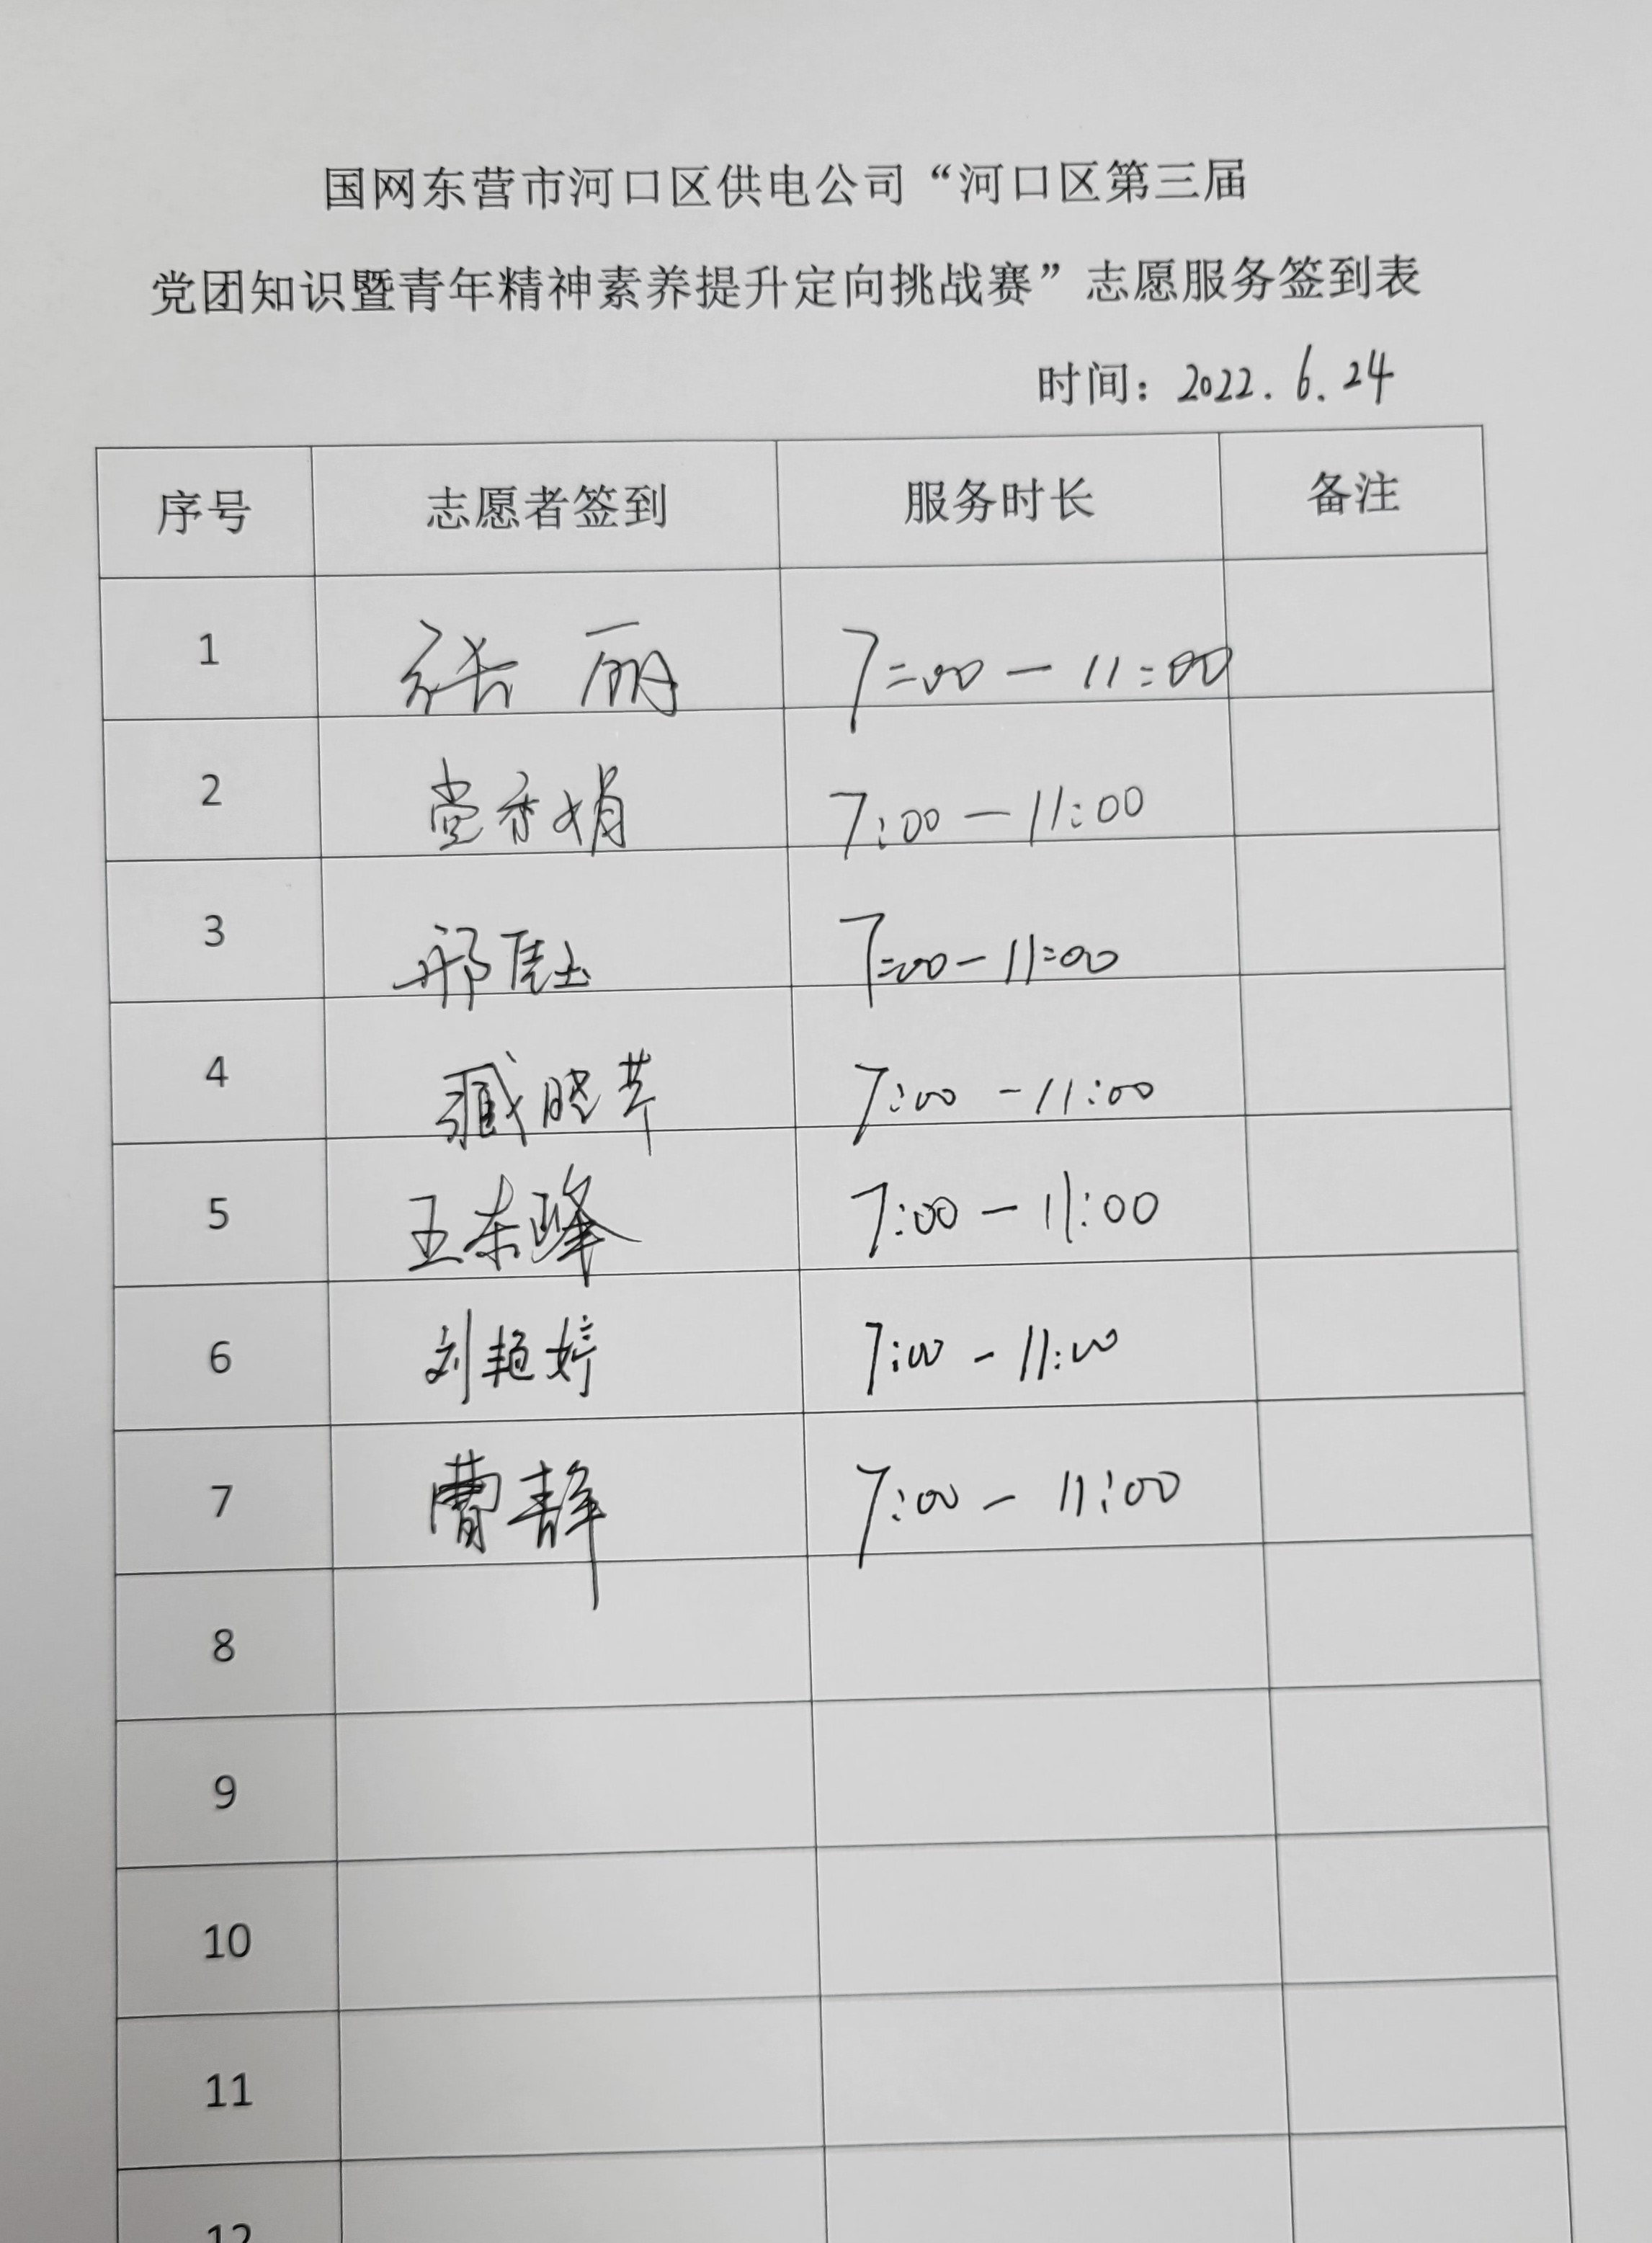 国网东营市河口区供电公司“河口区第三届
党团知识暨青年精神素养提升定向挑战赛”志愿服务签到表
时间：2022.6.24
序号 志愿者签到 服务时长 备注
1 张丽 7:00-11:00
2 党香娟 7:00-11:00
3 邢 7:00-11:00
4 臧晓芹 7:00-11:00
5 王东峰 7:00-11:00
6 刘艳婷 7:00-11:00
7 曹静 7:00-11:00
8
9
10
11
12